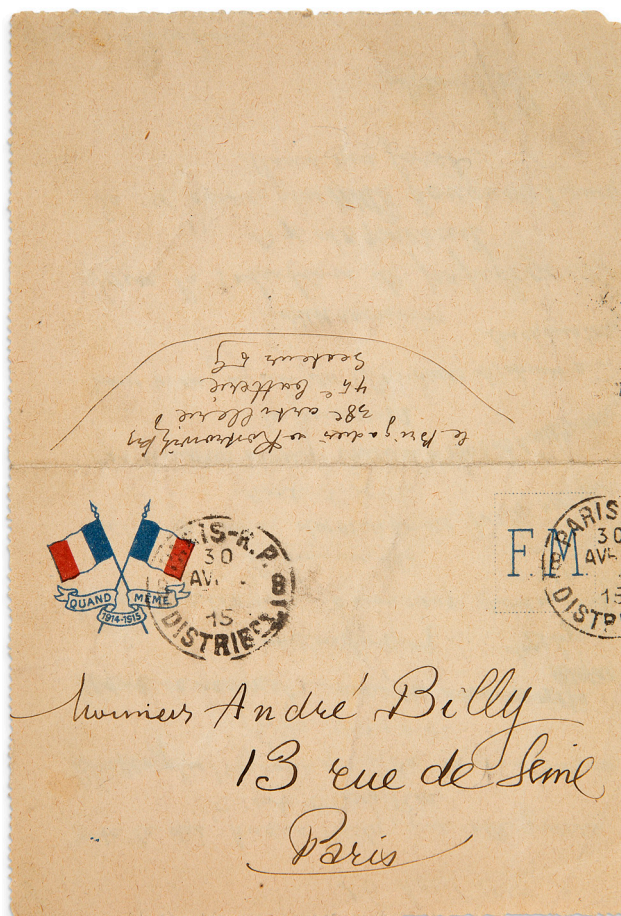 le Brigadier de Kostrowitzky
38e artillerie
45e batterie
Secteur 59
QUAND MÊME
1914-1915
PARIS-R.P. 8
30
AVR
15
DISTRIB
FM
PARIS
30
AVR
15
DISTR
Monsieur André Billy
13 rue de Seine
Paris